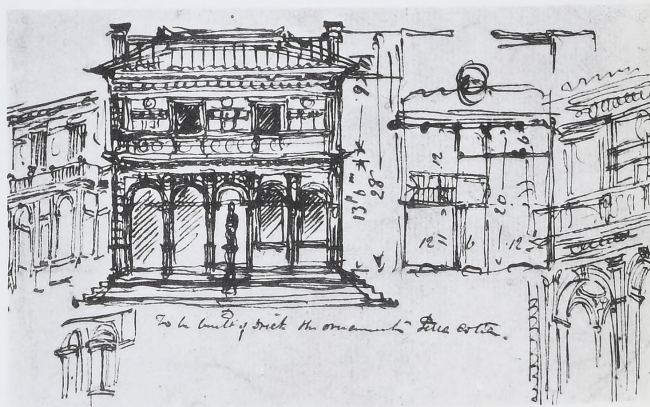 9
13
28
12
6
20
12
6
12
To be built of Brick the ornaments Terra Cotta.